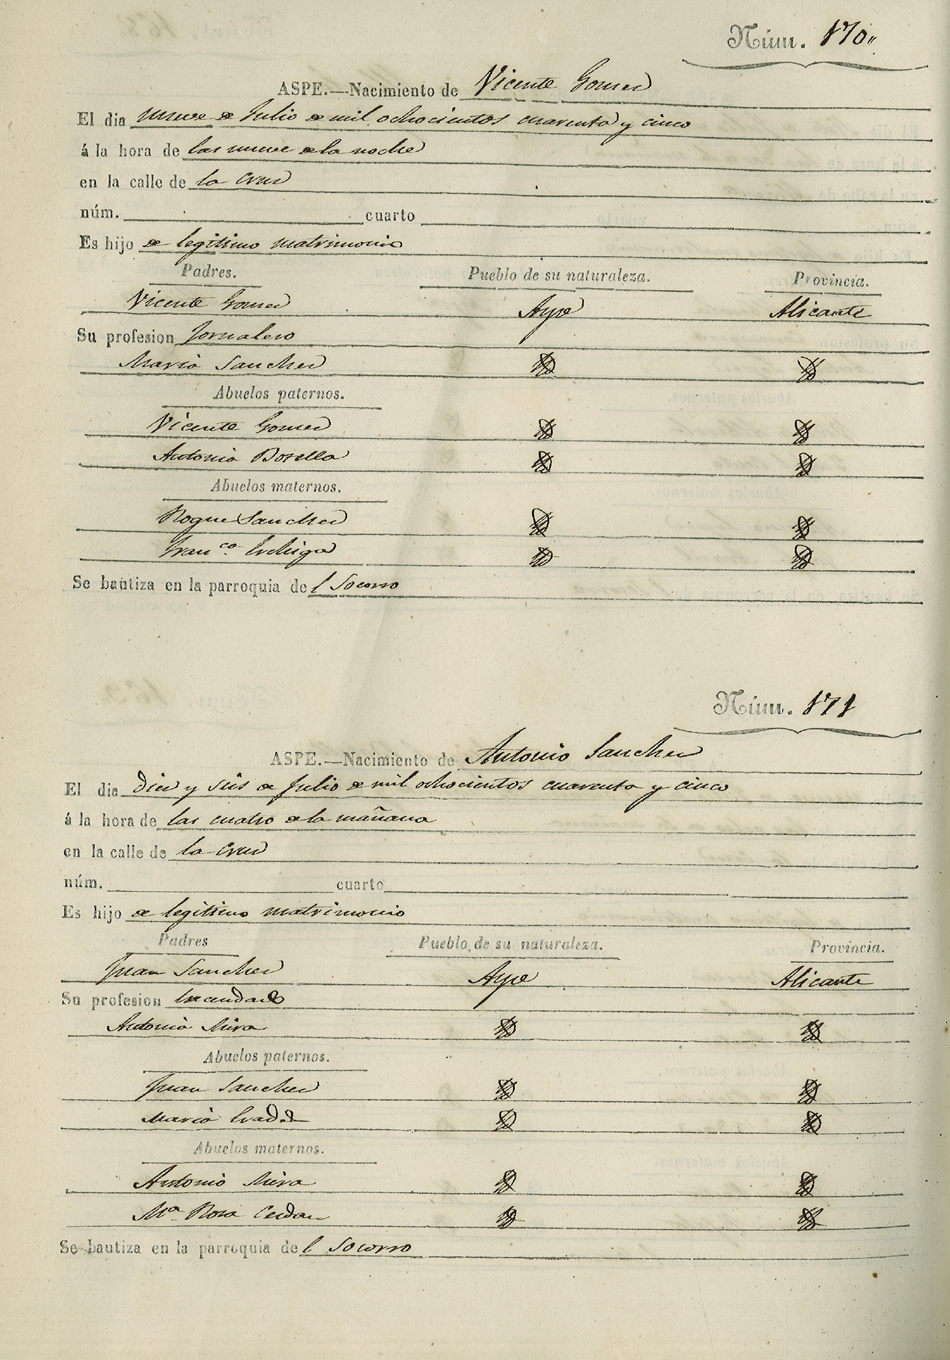 Núm. 170
ASPE.—Nacimiento de Vicente Gomez
El dia nueve de Julio de mil ochocientos cuarenta y cinco
á la hora de las nueve de la noche
en la calle de la Cruz
núm. cuarto
Es hijo de legitimo matrimonio
Padres. Pueblo de su naturaleza. Provincia.
Vicente Gomez Aspe Alicante
Su profesion Jornalero
Maria Sanchez
Abuelos paternos.
Vicente Gomez
Antonia Botella
Abuelos maternos.
Roque Sanchez
Fran.ca
Se bautiza en la parroquia de l Socorro
Núm. 171
ASPE.—Nacimiento de Antonio Sanchez
El dia diez y seis de Julio de mil ochocientos cuarenta y cinco
á la hora de las cuatro de la mañana
en la calle de la Cruz
núm. cuarto
Es hijo de legitimo matrimonio
Padres Pueblo de su naturaleza. Provincia.
Juan Sanchez Aspe Alicante
Su profesion
Antonia Mira
Abuelos paternos.
Juan Sanchez
Maria
Abuelos maternos.
Antonio Mira
Mª Rosa Cerdan
Se bautiza en la parroquia de l Socorro